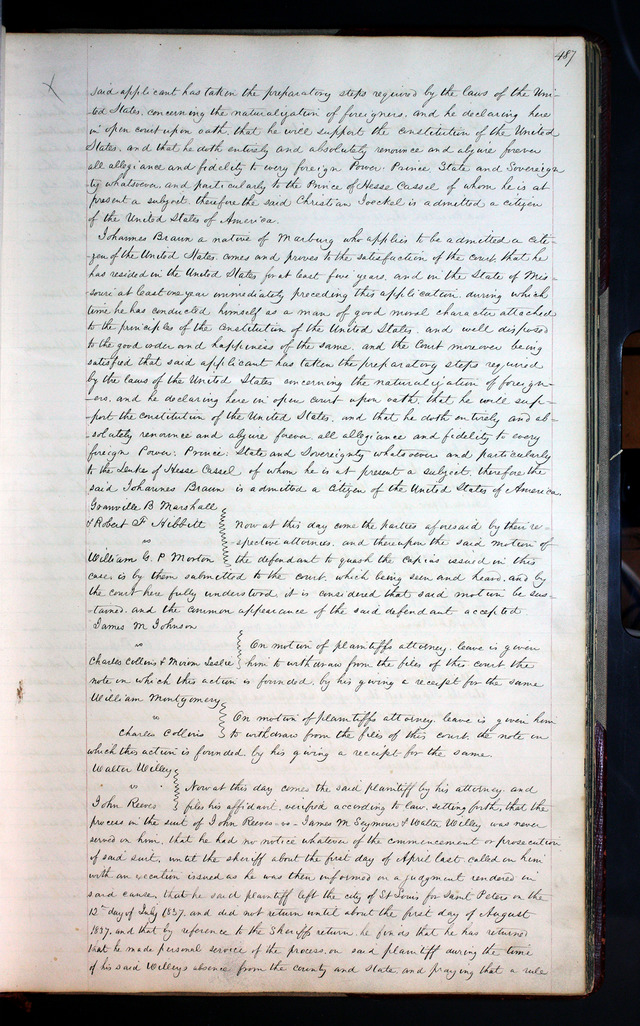 487
said applicant has taken the preparatory steps required by the laws of the Uni-
-ted States, concerning the naturalization of foreigners, and he declaring here
in open court upon oath, that he will support the constitution of the United
States, and that he doth entirely and absolutely renounce and abjure forever
all allegiance and fidelity to every foreign Power, Prince State and Sovereign
-ty whatsoever, and particularly to the Prince of Hesse Cassel of whom he is at
present a subject, therefore the said Christian is admitted a citizen
of the United States of America.
Johannes Braun a native of Marburg who applies to be admitted a citi-
-zen of the United States, comes and proves to the satisfaction of the court, that he
has resided in the United States for at least five years, and in the State of Mis-
-souri at least one year immediately preceding this application, during which
time he has conducted himself as a man of good moral character attached
to the principles of the constitution of the United States, and well disposed
to the good order and happiness of the same, and the Court moreover being
satisfied that said applicant has taken the preparatory steps required
by the laws of the United States concerning the naturalization of foreign-
-ers, and he declaring here in open court upon oath, that he will sup-
-port the constitution of the United States, and that he doth entirely and ab-
-solutely renounce and abjure forever all allegiance and fidelity to every
foreign Power, Prince, State and Sovereignty whatsoever and particularly
to the of Hesse Cassel, of whom he is at present a subject, therefore the
said Johannes Braun is admitted a citizen of the United States of America.
Granville B Marshall
& Robert F Hibbitt
Now at this day come the parties aforesaid by their re-
vs
-spective attornies, and thereupon the said motion of
William C. P. Morton
the defendant to quash the capias issued in this
case, is by them submitted to the court, which being seen and heard, and by
the court here fully understood, it is considered that said motion be sus-
-tained, and the common appearance of the said defendant accepted
James M Johnson
vs
On motion of plaintiffs attorney, leave is given
Charles Collins & Miron Leslie
him to withdraw from the files of this court the
note on which this action is founded, by his giving a receipt for the same
William Montgomery
vs
On motion of plaintiffs attorney, leave is given him
Charles Collins
to withdraw from the files of this court, the note on
which this action is founded, by his giving a receipt for the same.
Walter Willey
vs
Now at this day comes the said plaintiff by his attorney and
John Reeves
files his affidavit, verified according to law, setting forth, that the
process in the suit of John Reeves - vs - James M. Seymour & Walter Willey was never
served on him, that he had no notice whatever of the commencement or prosecution
of said suit, until the sheriff about the first day of April last called on him
with an execution issued as he was then informed on a judgment rendered in
said cause, that he said plaintiff left the city of St Louis for Saint Peters on the
12th day of July 1837, and did not return until about the first day of August
1837, and that by reference to the Sheriff return, he finds that he has returned
that he made personal service of the process, on said plaintiff during the time
of his said Willeys absence from the county and state, and praying that a rule